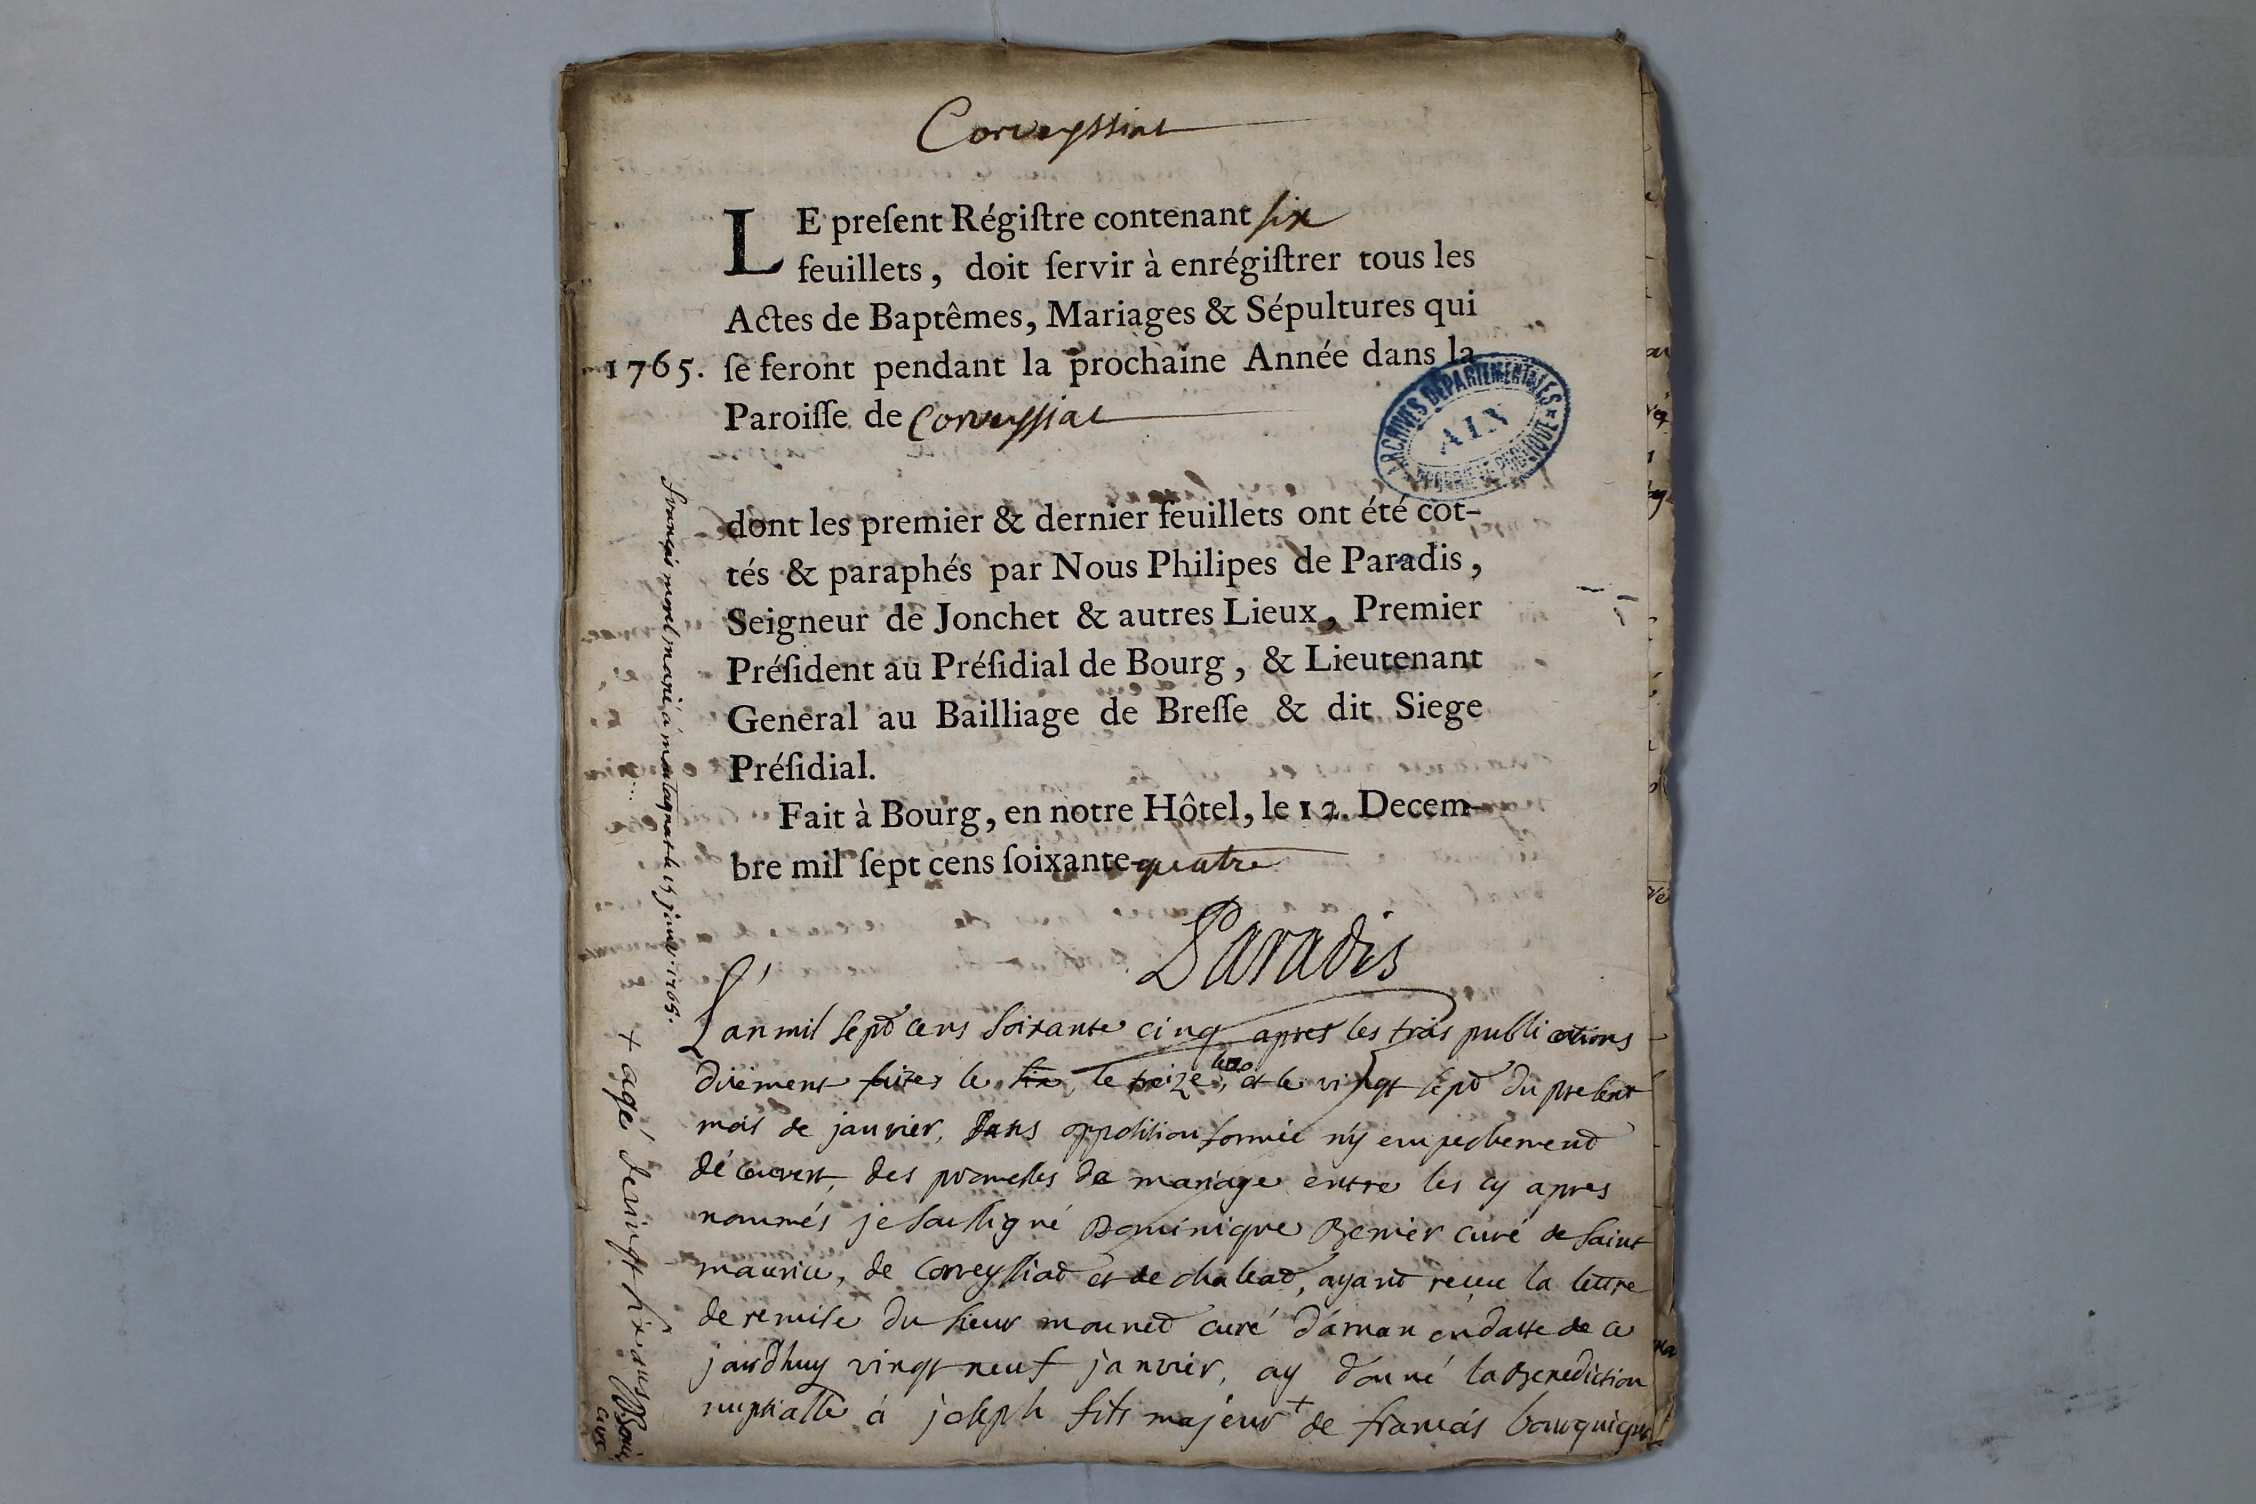 Corveyssiat
LE preſent Régiſtre contenant six
feuillets, doit ſervir à enrégiſtrer tous les
Actes de Baptêmes, Mariages & Sépultures qui
1765. ſe feront pendant la prochaine Année dans la
Paroiſſe de Corveyssiat
ARCHIVES DÉPARTEMENTALES
AIN
PROPRIÉTÉ PUBLIQUE
dont les premier & dernier feuillets ont été cot-
tés & paraphés par Nous Philipes de Paradis,
Seigneur de Jonchet & autres Lieux, Premier
Préſident au Préſidial de Bourg, & Lieutenant
General au Bailliage de Breſſe & dit Siege
Préſidial.
Fait à Bourg, en notre Hôtel, le 12. Decem-
bre mil ſept cens ſoixante-quatre
Paradis
L'an mil sept cens soixante cinq apres les trois publications
düement faites le six, le treize, et le vingt sept du present
mois de janvier, sans opposition formée n'y empechement
découvert, des promesses de mariage entre les cy apres
nommés je soussigné Dominique Benier curé de saint
maurice, de Corveyssiat et de chaleat, ayant reçue la lettre
de remise du sieur mounet curé d'arnan en datte de ce
jourdhuy vingt neuf janvier, ay donné la Benediction
nuptialle à joseph fils majeur + de francois bourguign
françois morel marié á montagnat le 15 janv. 1765.
+ agé de vingt six ans
curé